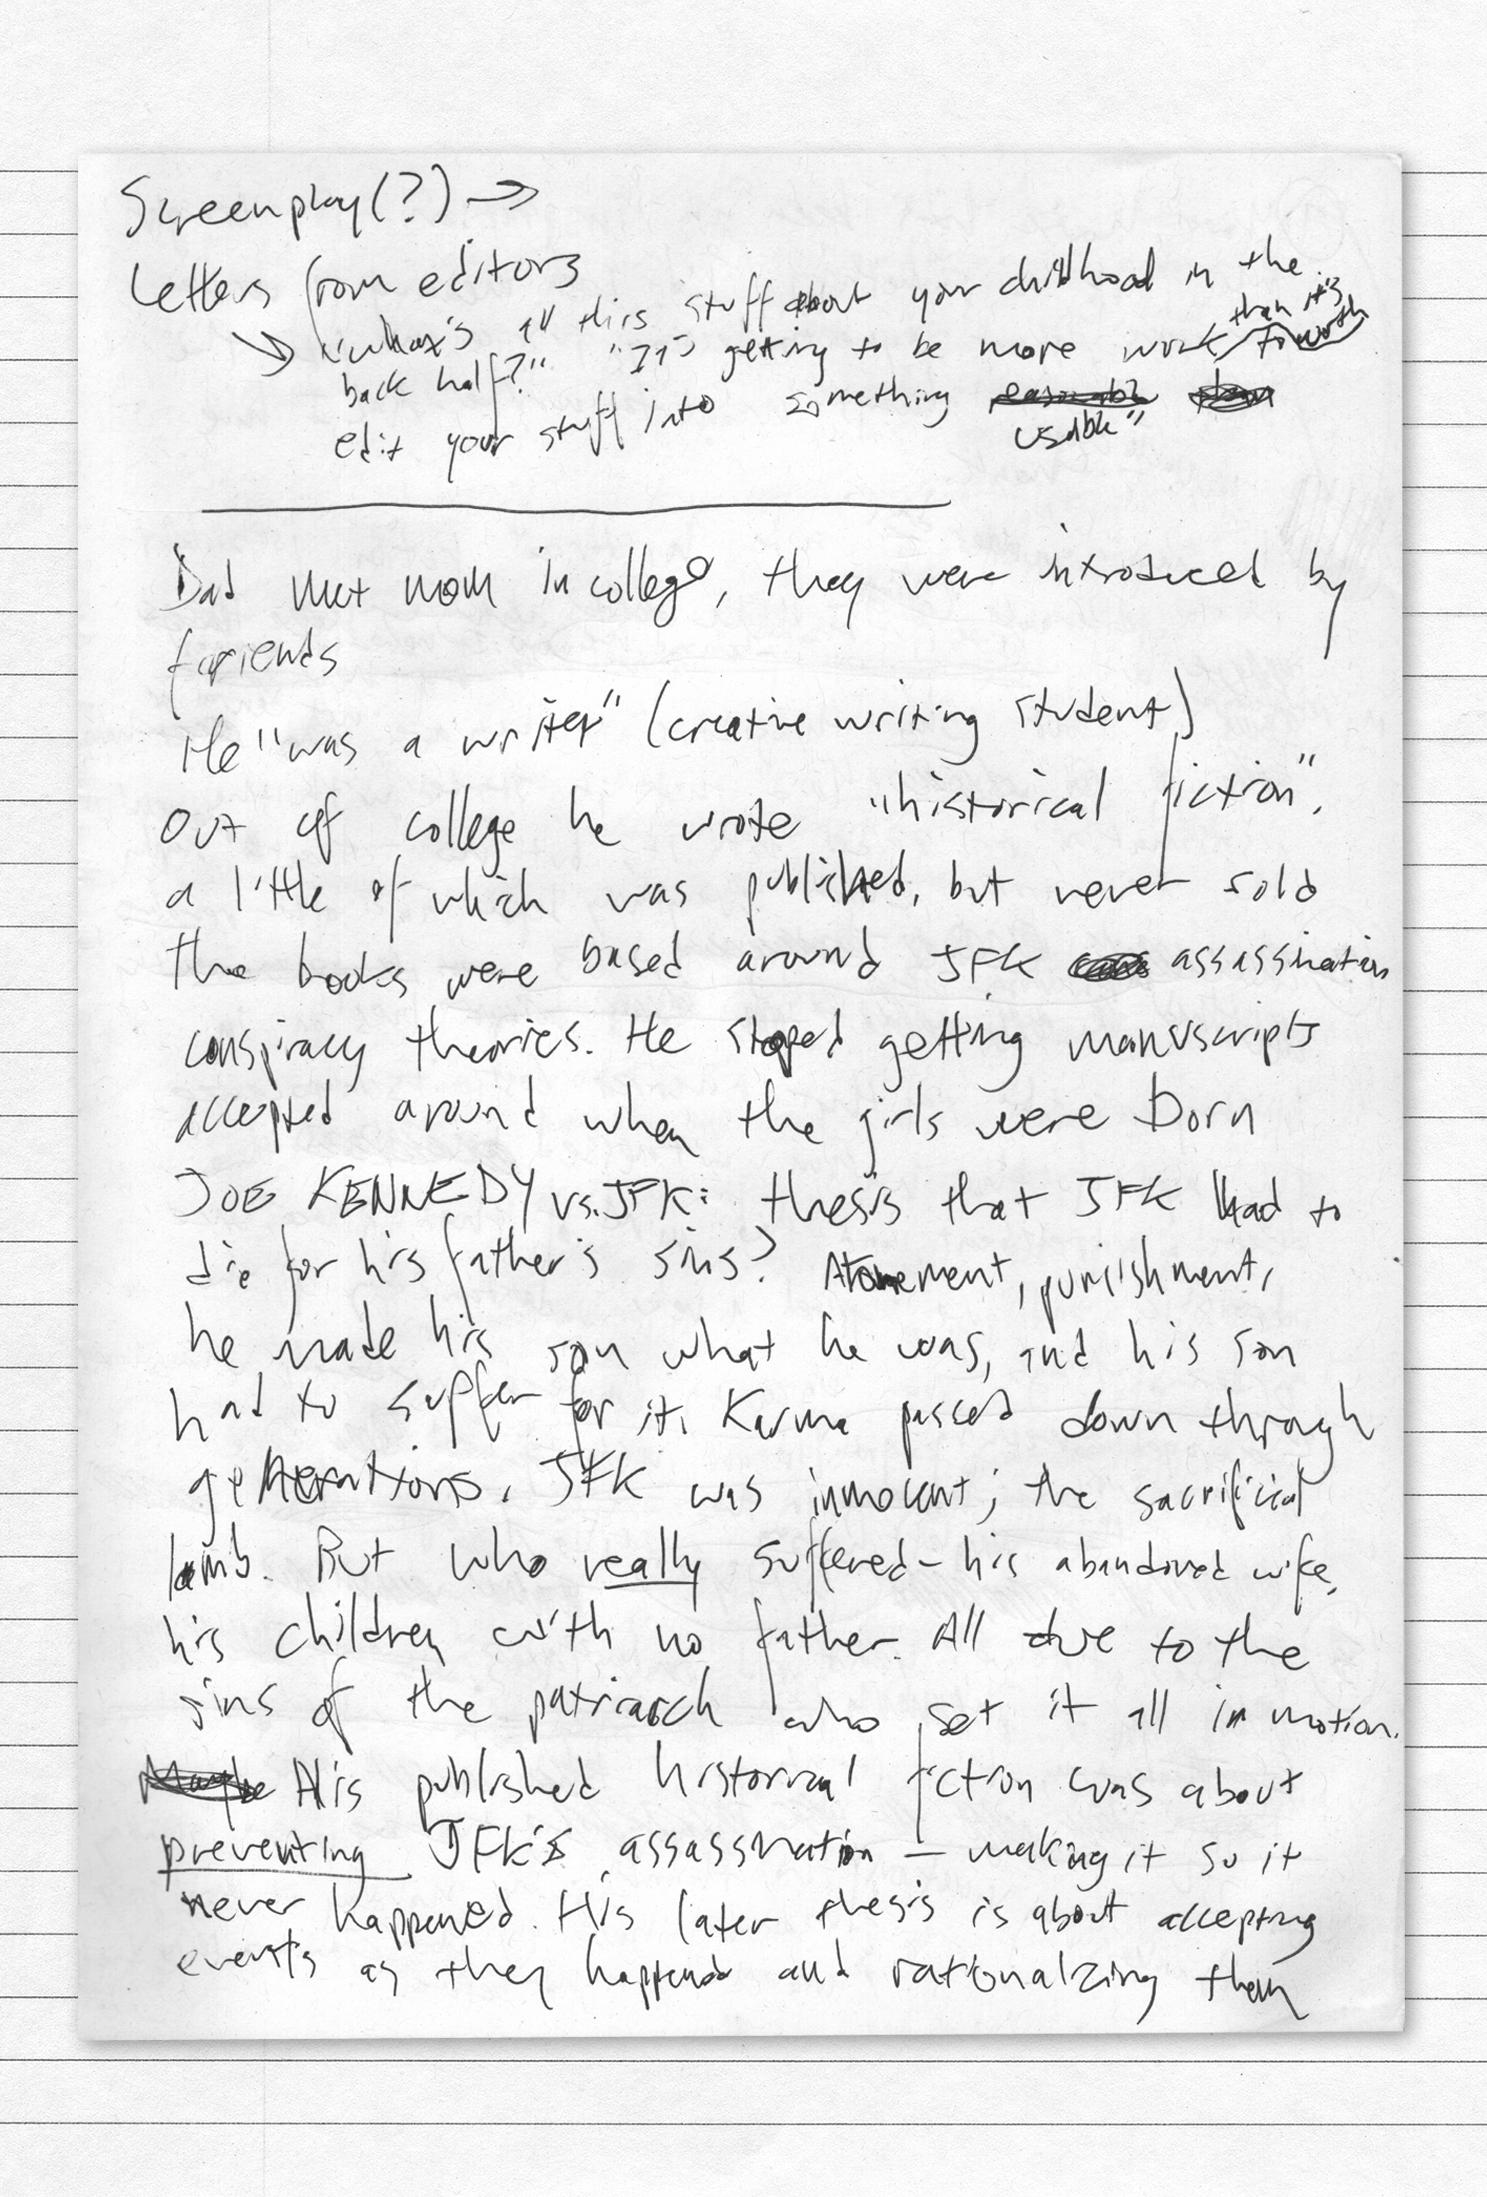 Screenplay(?) →
Letters from editors
"what's all this stuff about your childhood in the
back half?" "It's getting to be more work than it's worth to
edit your stuff into something usable"
Dad met mom in college, they were introduced by
friends
He "was a writer" (creative writing student)
Out of college he wrote "historical fiction",
a little of which was published, but never sold
The books were based around JFK assassination
conspiracy theories. He stoped getting manuscripts
accepted around when the girls were born
JOE KENNEDY vs. JFK: thesis that JFK had to
die for his father's sins? Atonement, punishment,
he made his son what he was, and his son
had to suffer for it. Karma passed down through
generations. JFK was innocent; the sacrificial
lamb. But who really suffered – his abandoned wife,
his children with no father. All due to the
sins of the patriarch who set it all in motion.
His published historical fiction was about
preventing JFK's assassination – making it so it
never happened. His later thesis is about accepting
events as they happened and rationalizing them